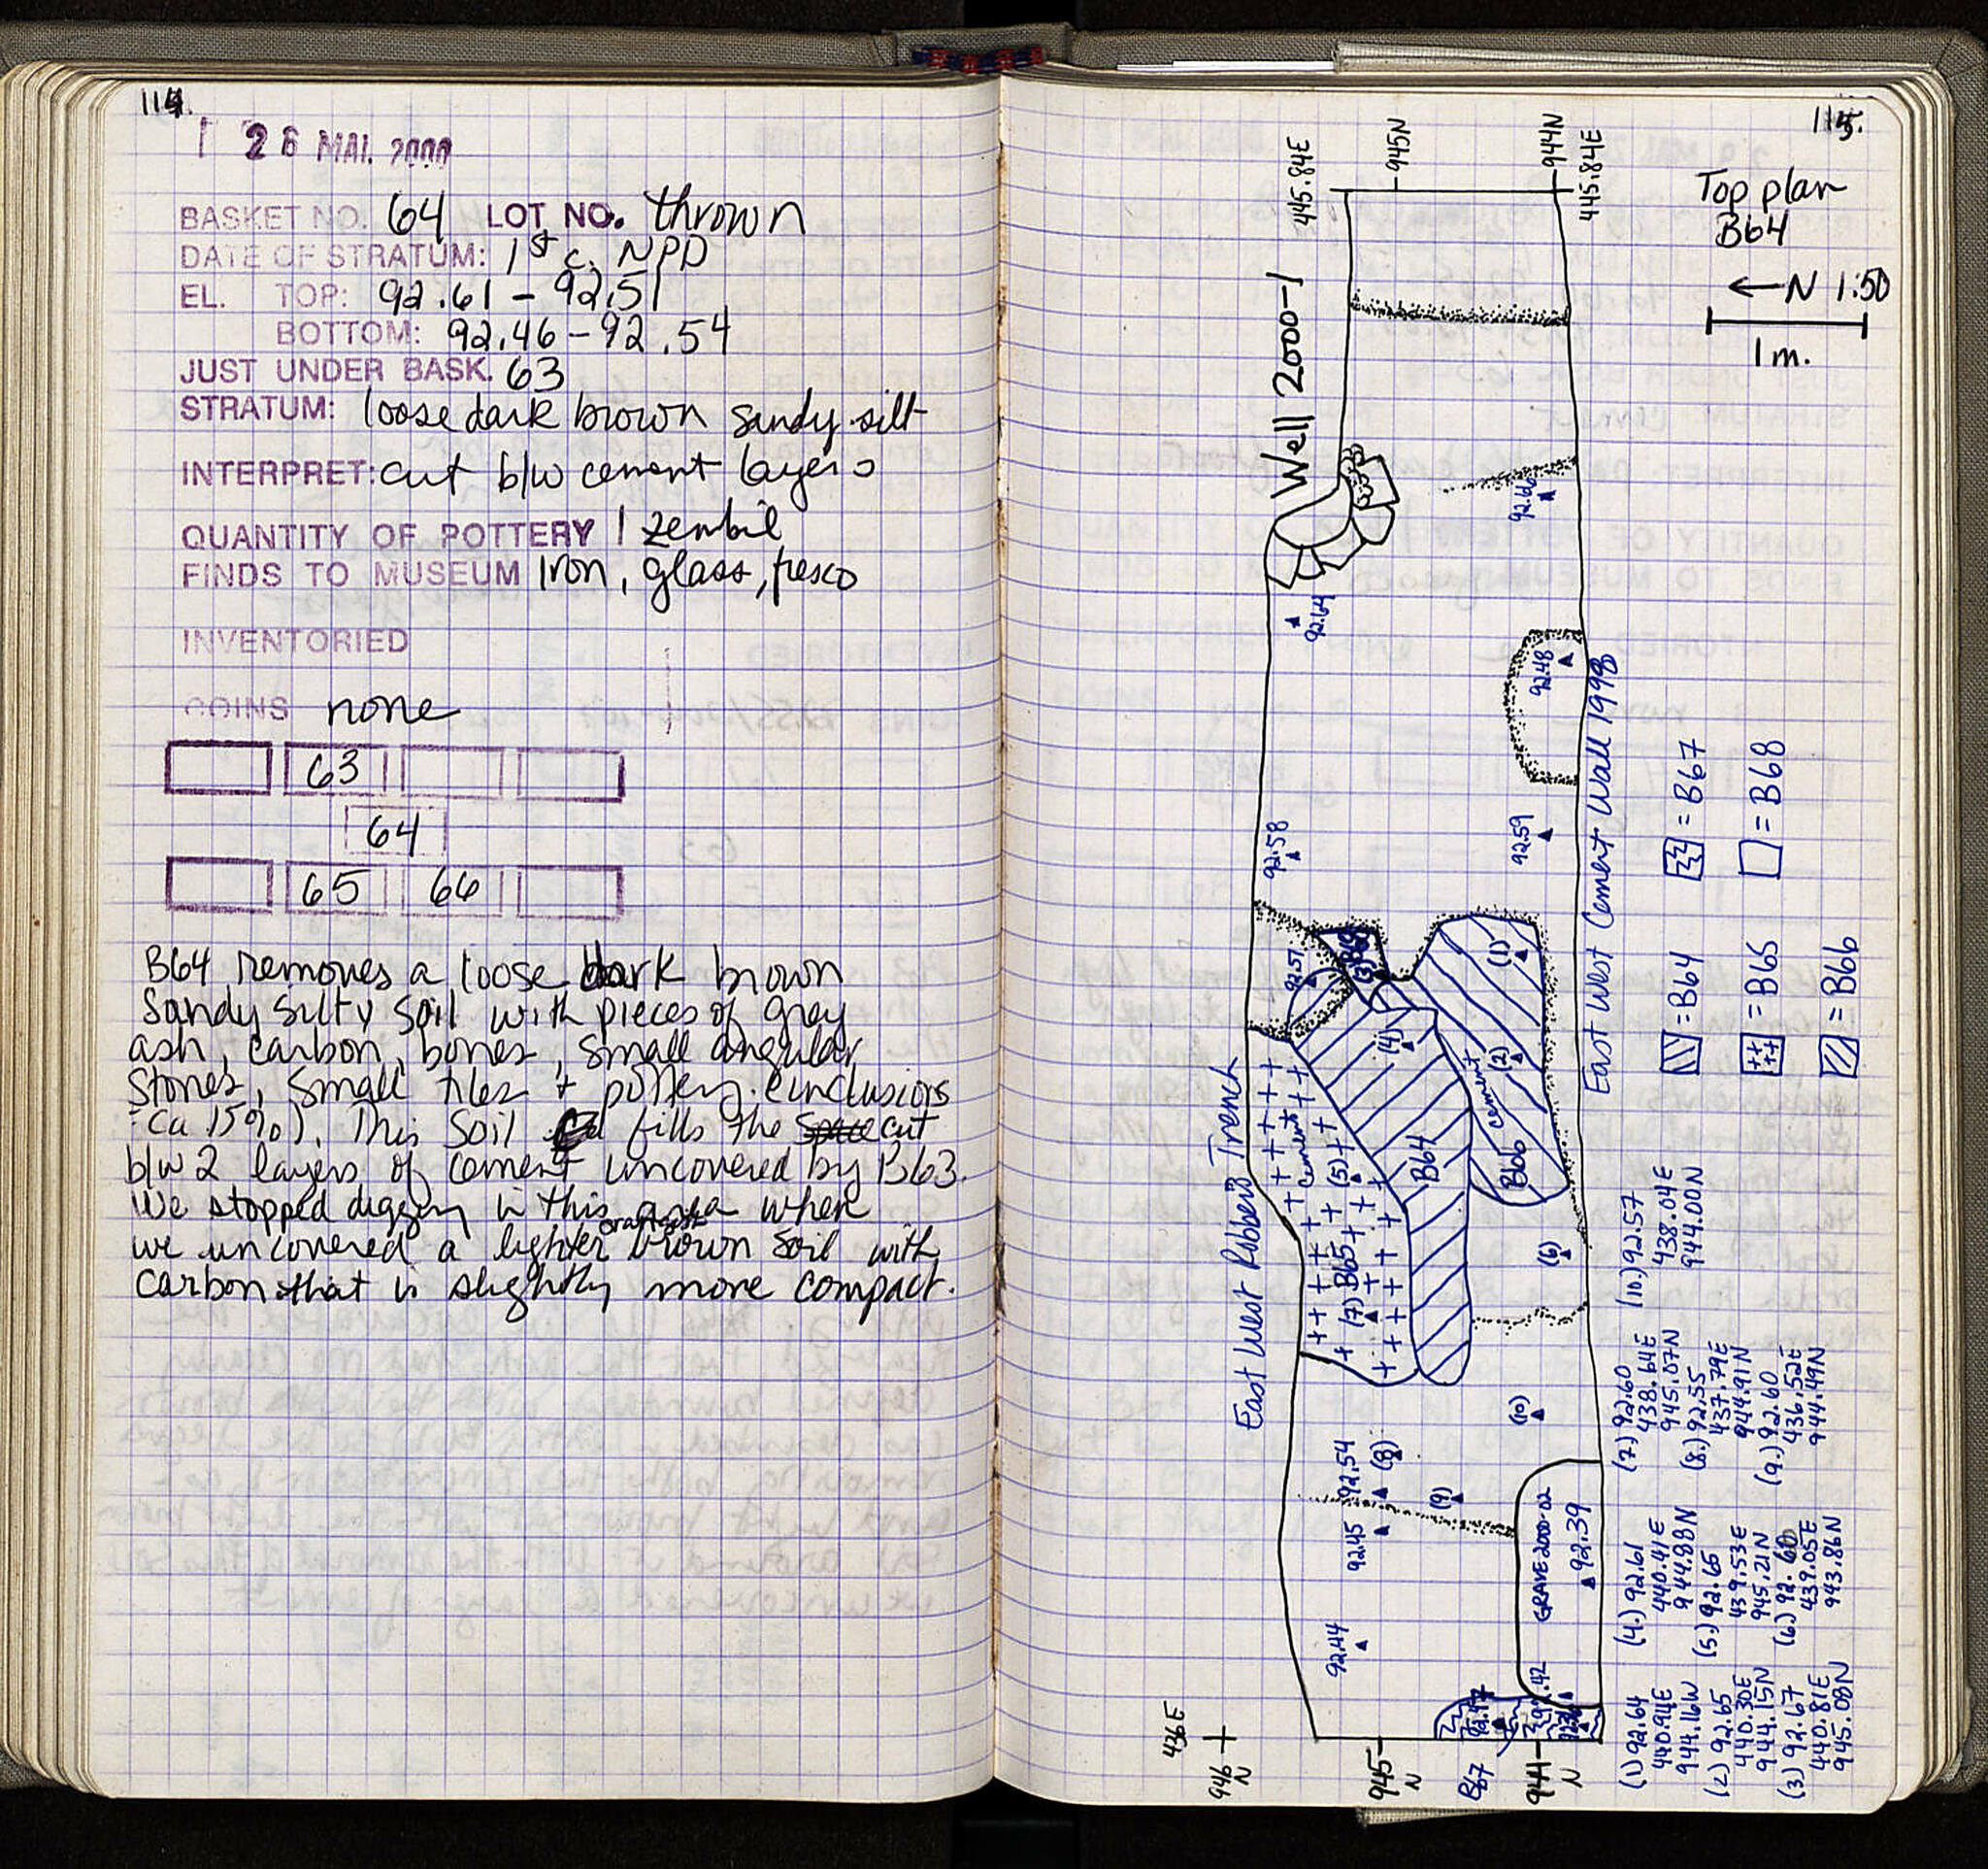 114.
26 MAI. 2000
BASKET NO. 64 LOT NO. thrown
DATE OF STRATUM: 1st c. NPD
EL. TOP: 92.61 - 92.51
BOTTOM: 92.46 - 92.54
JUST UNDER BASK. 63
STRATUM: loose dark brown sandy silt
INTERPRET: cut b/w cement layers
QUANTITY OF POTTERY 1 zembil
FINDS TO MUSEUM Iron, glass, fresco
INVENTORIED
COINS none
63
64
65 66
B64 removes a loose dark brown
sandy silty soil with pieces of gray
ash, carbon, bones, small angular
stones, small tiles + pottery inclusions
(ca 15%). This soil fills the cut
b/w 2 layers of cement uncovered by B63.
We stopped digging in this area when
we uncovered a lighter orangish brown soil with
carbon that is slightly more compact.
115.
Top plan
B64
← N 1:50
1m.
445.84E
945N
944N
445.84E
Well 2000-1
92.66
92.64
92.48
92.58
92.59
92.57
(3)
(1)
(4)
(2)
cement
cement
(5)
B64
B66
(7) B65
(6)
East West Robber's Trench
East West Cement Wall 1998
= B64
= B65
= B66
= B67
= B68
(10)
92.54
(8)
(9)
92.45
92.44
GRAVE 2000-02
92.39
92.42
436E
946 N
945 N
B67
944 N
(1) 92.64
440.94E
944.16N
(2) 92.65
440.30E
944.15N
(3) 92.67
440.81E
945.08N
(4.) 92.61
440.41E
944.88N
(5.) 92.65
439.53E
945.21N
(6.) 92.60
439.05E
943.86N
(7.) 92.60
438.64E
945.07N
(8.) 92.55
437.79E
944.91N
(9.) 92.60
436.52E
944.49N
(10.) 92.57
438.04E
944.00N